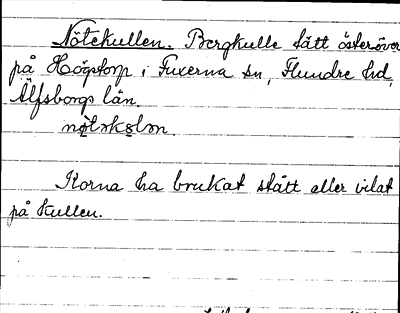 Nötekullen. Bergkulle tätt österöver
på Högstorp i Fuxerna sn, Flundre hd,
Älfsborgs län.
nø̣tǝkɷlǝn.
Korna ha brukat stått eller vilat
på kullen.